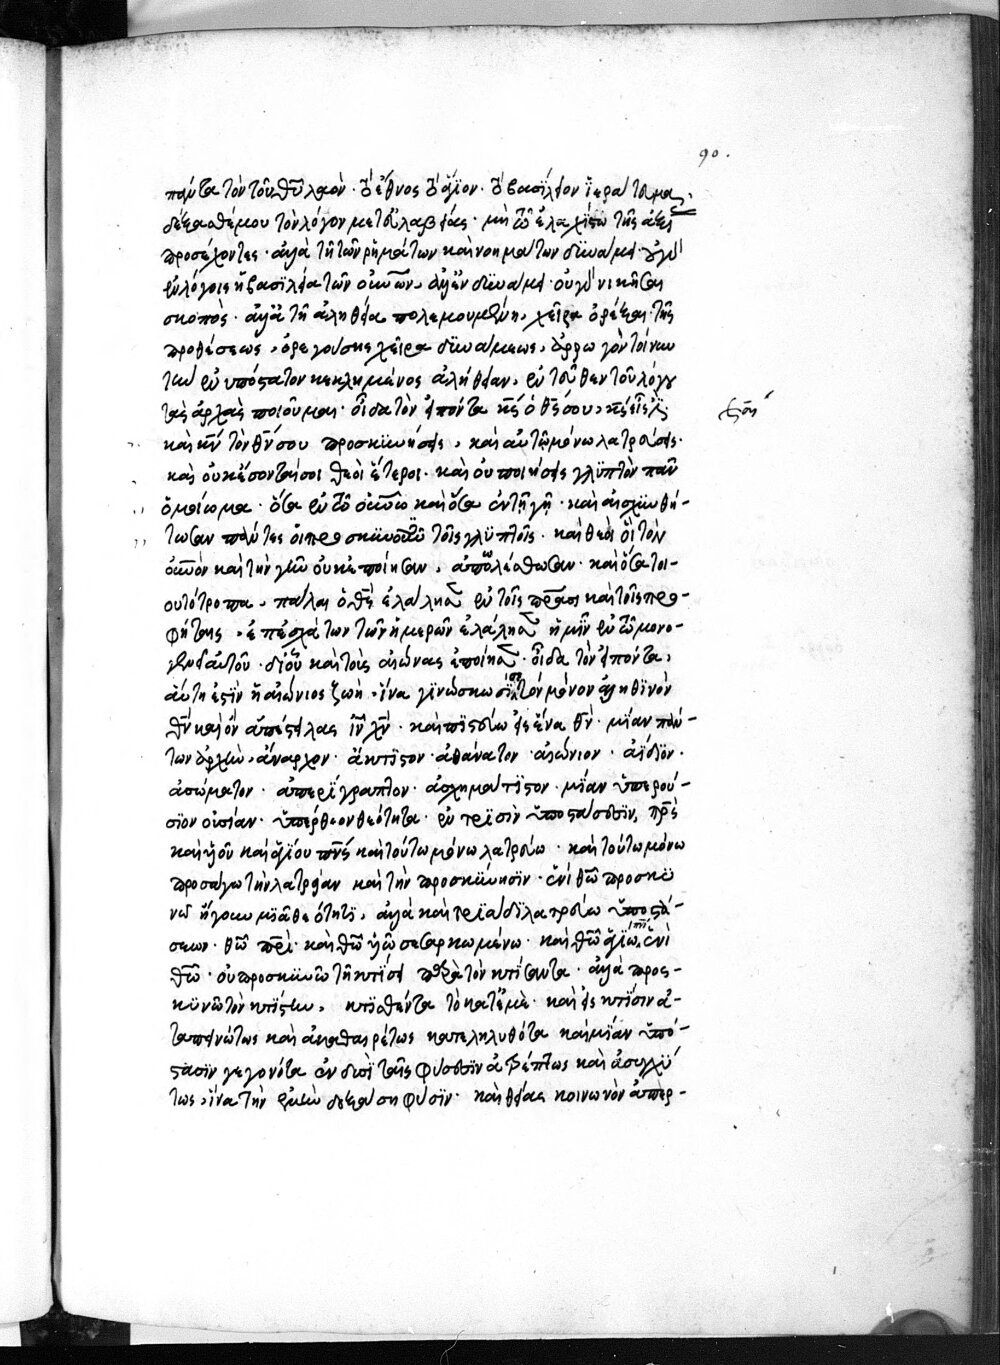 90.
πάντα τὸν τοῦ θῦ λαὸν · τὸ ἔθνος τὸ ἅγιον · τὸ βασίλειον ἱεράτευμα,
δέξασθέ μου τὸν λόγον μετ' εὐλαβείας · μὴ τῶ ἐλαχίστω τῆς ἀξί
προσέχοντες · ἀλλὰ τῆ τῶν ρημάτων καὶ νοημάτων δυνάμει · οὐ γὰρ
ἐν λόγοις ἡ βασιλεία τῶν οὐνῶν, ἀλλ' ἐν δυνάμει · οὐ γὰρ νικῆσαι
σκοπὸς · ἀλλὰ τῆ ἀληθεία πολεμουμένη, χεῖρα ὀρέξαι τῆς
προθέσεως, ὀρεγούσης χεῖρα δυνάμεως,
τὴν ἐνυπόστατον κεκλημένος ἀλήθειαν, ἐντεῦθεν τοῦ λόγου
τὰς ἀρχὰς ποιοῦμαι · οἶδα τὸν εἰπόντα κς ὁ θς σου, κς εἷς ἐστι
καὶ κν τὸν θν σου προσκυνήσεις, καὶ αὐτῶ μόνω λατρεύσεις ·
καὶ οὐκ ἔσονταί σοι θεοὶ ἕτεροι · καὶ οὐ ποιήσεις γλυπτὸν πᾶν
ὁμοίωμα · ὅσα ἐν τῶ οὐνῶ καὶ ὅσα ἐν τῆ γῆ · καὶ αἰσχυνθή-
τωσαν πάντες οἱ προσκυνοῦντες τοῖς γλυπτοῖς · καὶ θεοὶ οἳ τὸν
οὐνὸν καὶ τὴν γῆν οὐκ ἐποίησαν, ἀπολέσθωσαν · καὶ ὅσα τοι-
ουτότροπα, πάλαι ὁ θς ἐλάλησε ἐν τοῖς πράσι καὶ τοῖς προ-
φήταις, ἐπ' ἐσχάτων τῶν ἡμερῶν ἐλάλησε ἡμῖν ἐν τῶ μονο-
γενεῖ αὐτοῦ · δι' οὗ καὶ τοὺς αἰώνας ἐποίησε · οἶδα τὸν εἰπόντα,
αὕτη ἐστὶν ἡ αἰώνιος ζωὴ, ἵνα γινώσκωσί σε τὸν μόνον ἀληθινὸν
θν καὶ ὃν ἀπέστειλας ιν χν · καὶ πιστεύω εἰς ἕνα θν · μίαν πάν-
των ἀρχὴν, ἄναρχον · ἄκτιστον · ἀθάνατον · αἰώνιον · ἀΐδιον ·
ἀσώματον · ἀπερίγραπτον · ἀσχημάτιστον · μίαν ὑπερού-
σιον οὐσίαν · ὑπέρθεον θεότητα · ἐν τρισὶν ὑποστάσεσιν, πρς
καὶ υἱοῦ καὶ ἁγίου πνς καὶ τούτω μόνω λατρεύω · καὶ τούτω μόνω
προσάγω τὴν λατρείαν καὶ τὴν προσκύνησιν · ἑνὶ θῶ προσκυ
νῶ ἤγουν μιᾶ θεότητι, ἀλλὰ καὶ τριάδι λατρεύω ὑποστά-
σεων · θῶ πρὶ · καὶ θῶ υἱῶ σεσαρκωμένω · καὶ θῶ ἁγίω πνι ἑνὶ
θῶ · οὐ προσκυνῶ τῆ κτίσει παρὰ τὸν κτίσαντα · ἀλλὰ προς-
κυνῶ τὸν κτίστην, κτισθέντα τὸ κατ' ἐμὲ · καὶ εἰς κτίσιν ἀ-
ταπεινώτως καὶ ἀκαθαιρέτως κατεληλυθότα καὶ μίαν ὑπό-
στασιν γεγονότα ἐν δυσὶ ταῖς φύσεσιν ἀτρέπτως καὶ ἀσυγχύ
τως, ἵνα τὴν ἐμὴν δοξάση φύσιν · καὶ θείας κοινωνὸν ἀπερ-